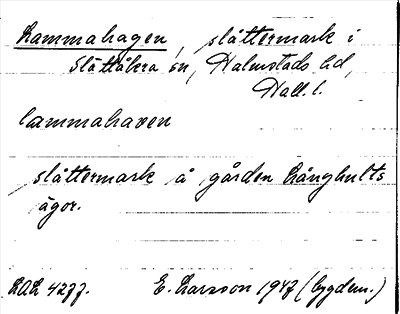 Lammahagen, slåttermark i
Slättåkra sn, Halmstads hd,
Hall. l.
lammahaven
slåttermark å gården Långhults
ägor.
LAL 4277. E. Larsson 1947 (bygdem.)